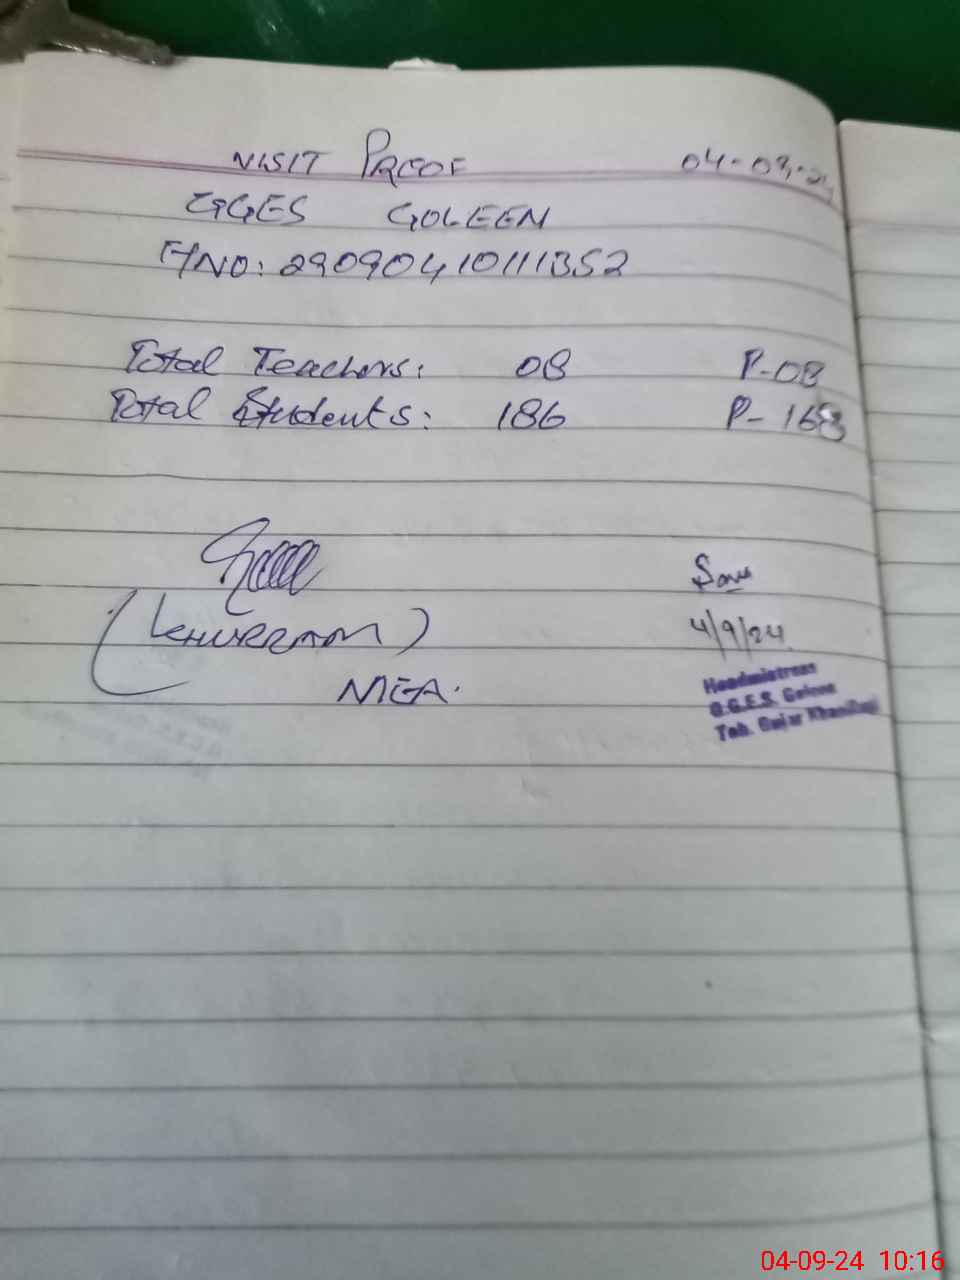 VISIT PROOF 04-09-24
GGES GOLEEN
A/NO: 29090410111352
Total Teachers: 08 P-08
Total Students: 186 P-168
(KHURRAM)
MEA.
4/9/24
Headmistress
G.G.E.S. Goleen
Teh. Gujar Khan
04-09-24 10:16